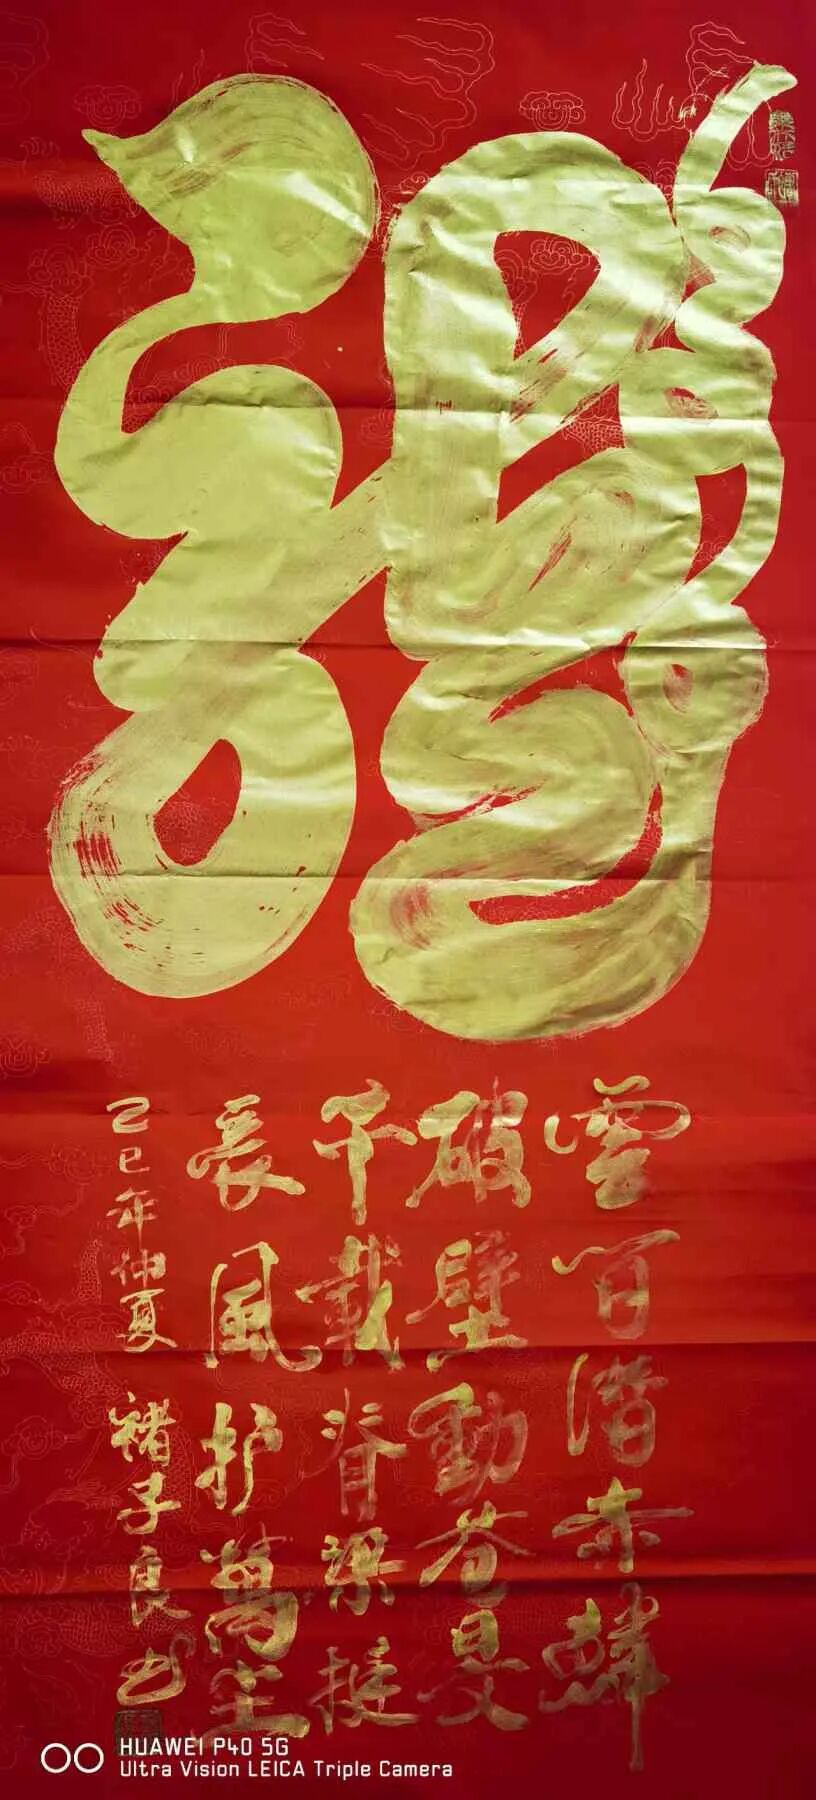 龍
雲间潜赤鳞
破壁動苍旻
千載脊梁挺
長風护萬尘
乙巳年仲夏 褚子良书
HUAWEI P40 5G
Ultra Vision LEICA Triple Camera